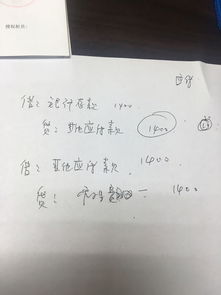 应付
借：银行存款 1400
贷：其他应付款 1400
借：其他应付款 1400
贷： 1400